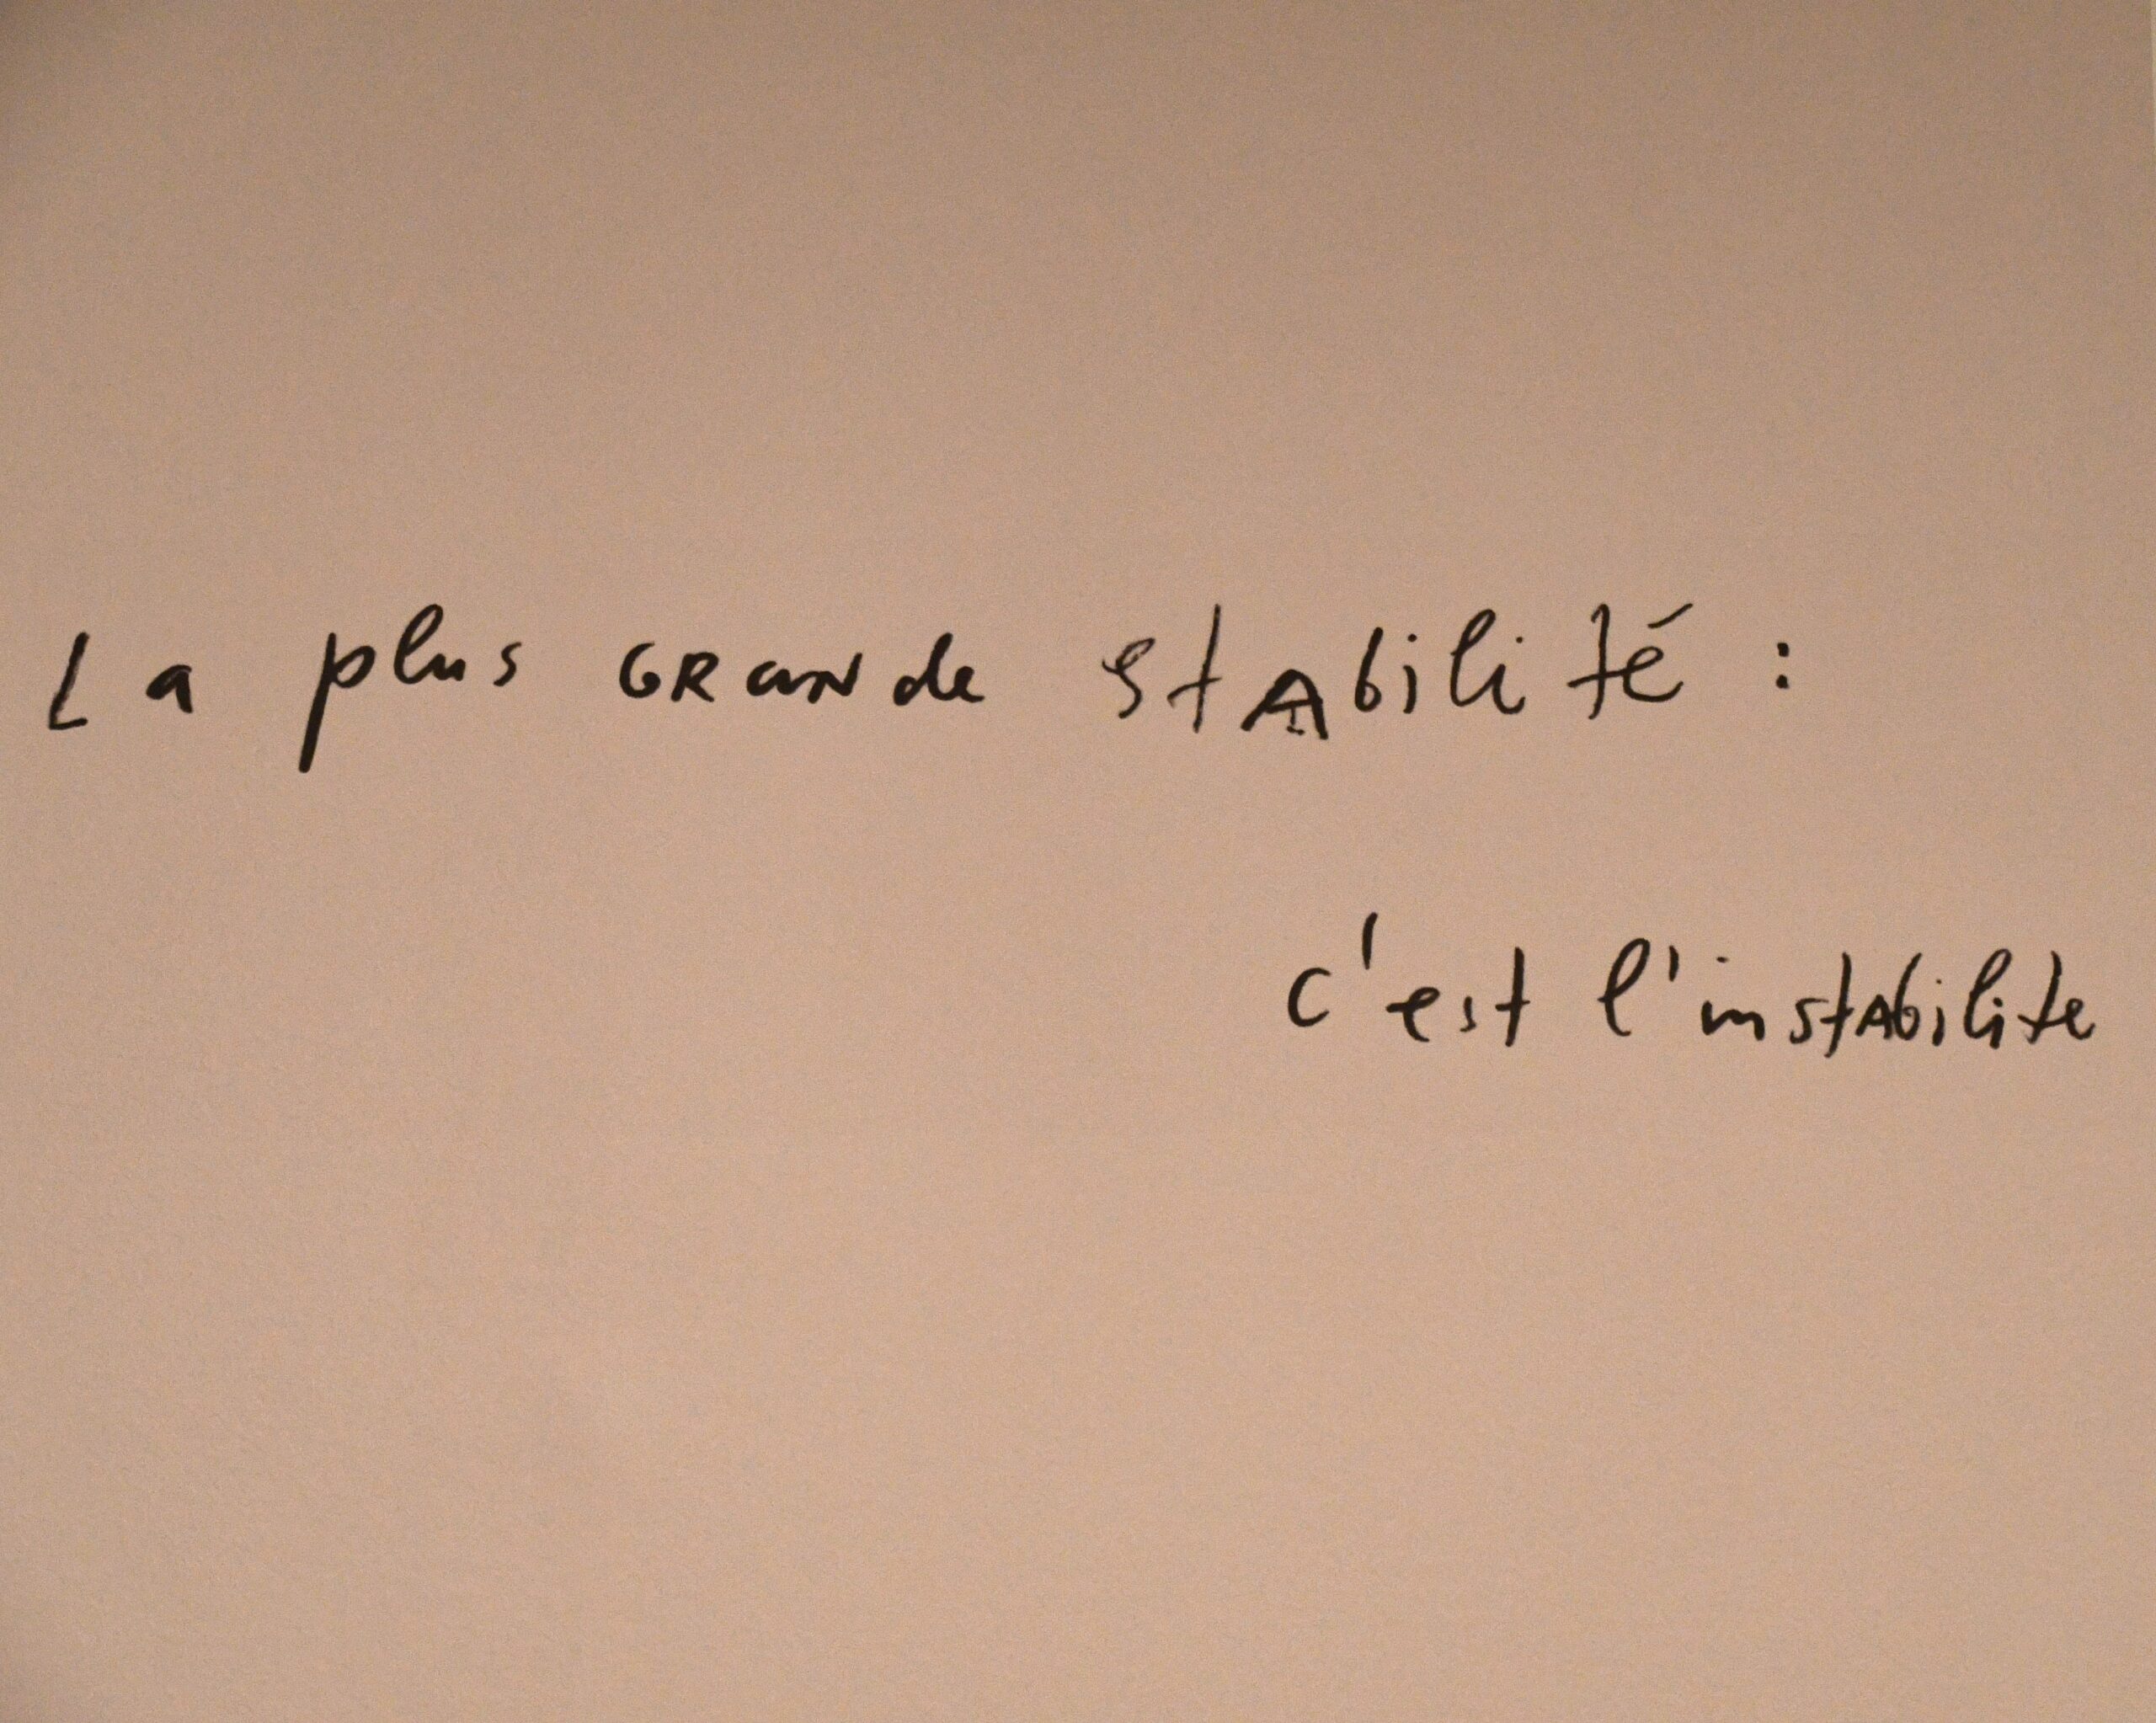 La plus GRANde stAbilité :
c'est l'instAbilite